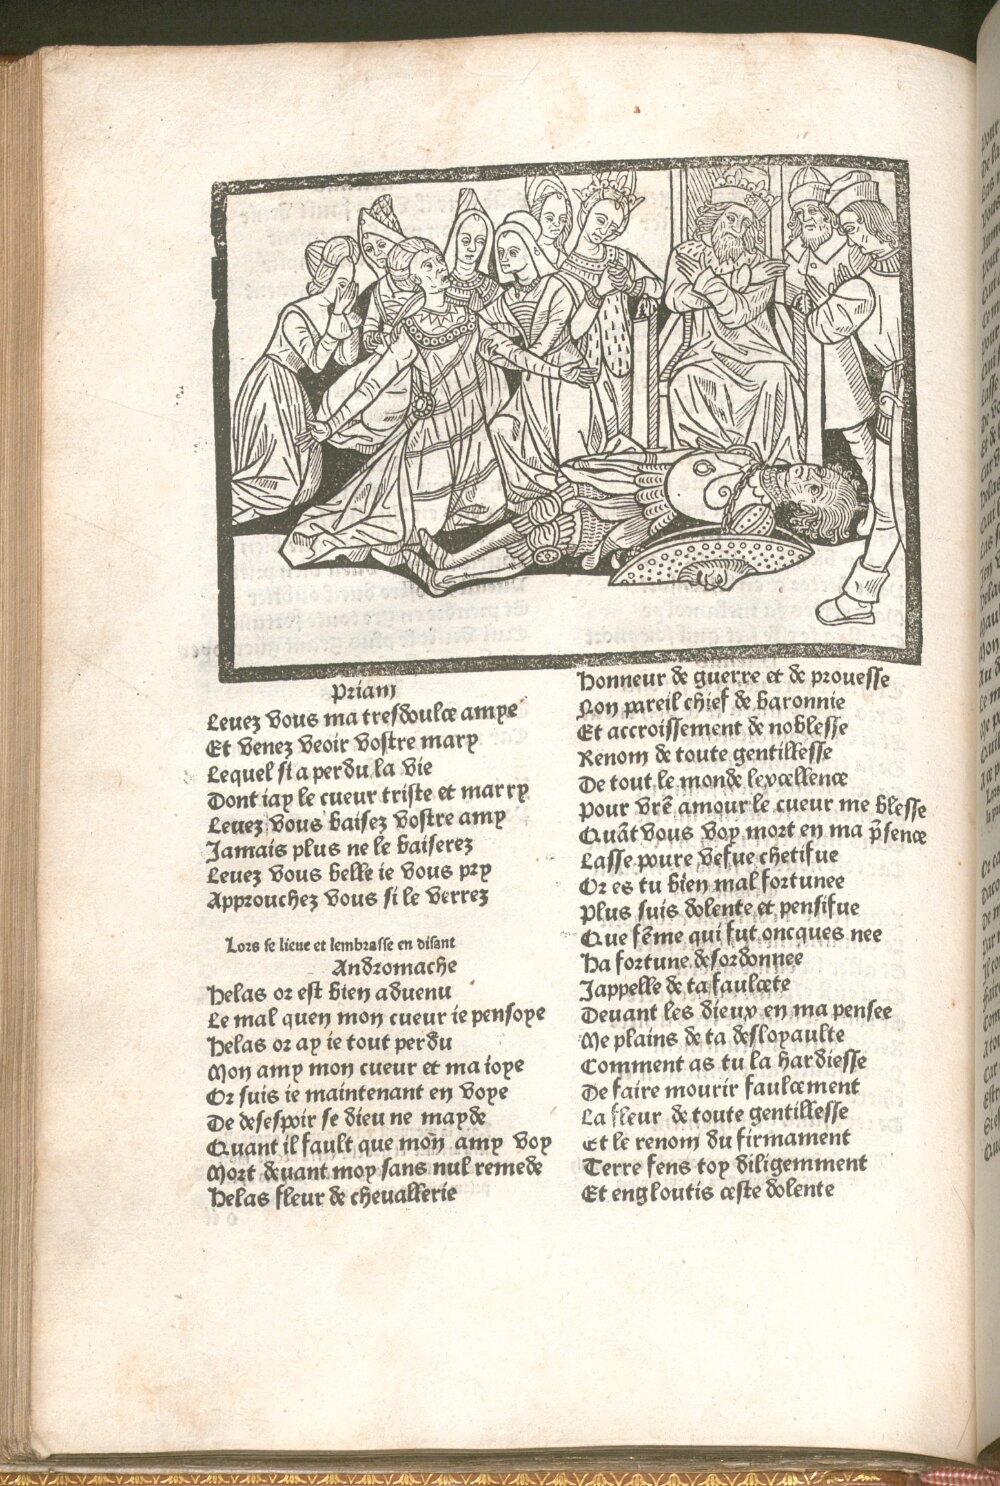 Priam
Leuez vous ma tresdoulce amye
Et venez veoir vostre mary
Lequel si a perdu la vie
Dont iay le cueur triste et marry
Leuez vous baisez vostre amy
Jamais plus ne le baiserez
Leuez vous belle ie vous pry
Approuchez vous si le verrez
Lors se lieue et lembrasse en disant
Andromache
Helas or est bien aduenu
Le mal quen mon cueur ie pensoye
Helas or ay ie tout perdu
Mon amy mon cueur et ma ioye
Or suis ie maintenant en voye
De desespoir se dieu ne mayde
Quant il fault que mon amy voy
Mort deuant moy sans nul remede
Helas fleur de cheuallerie
Honneur de guerre et de prouesse
Non pareil chief de baronnie
Et accroissement de noblesse
Renom de toute gentillesse
De tout le monde lexcellence
Pour vrē amour le cueur me blesse
Quāt vous voy mort en ma p̄sence
Lasse poure vefue chetifue
Or es tu bien mal fortunee
Plus suis dolente et pensifue
Que fēme qui fut oncques nee
Ha fortune desordonnee
Jappelle de ta faulcete
Deuant les dieux en ma pensee
Me plains de ta desloyaulte
Comment as tu la hardiesse
De faire mourir faulcement
La fleur de toute gentillesse
Et le renom du firmament
Terre fens toy diligemment
Et engloutis ceste dolente